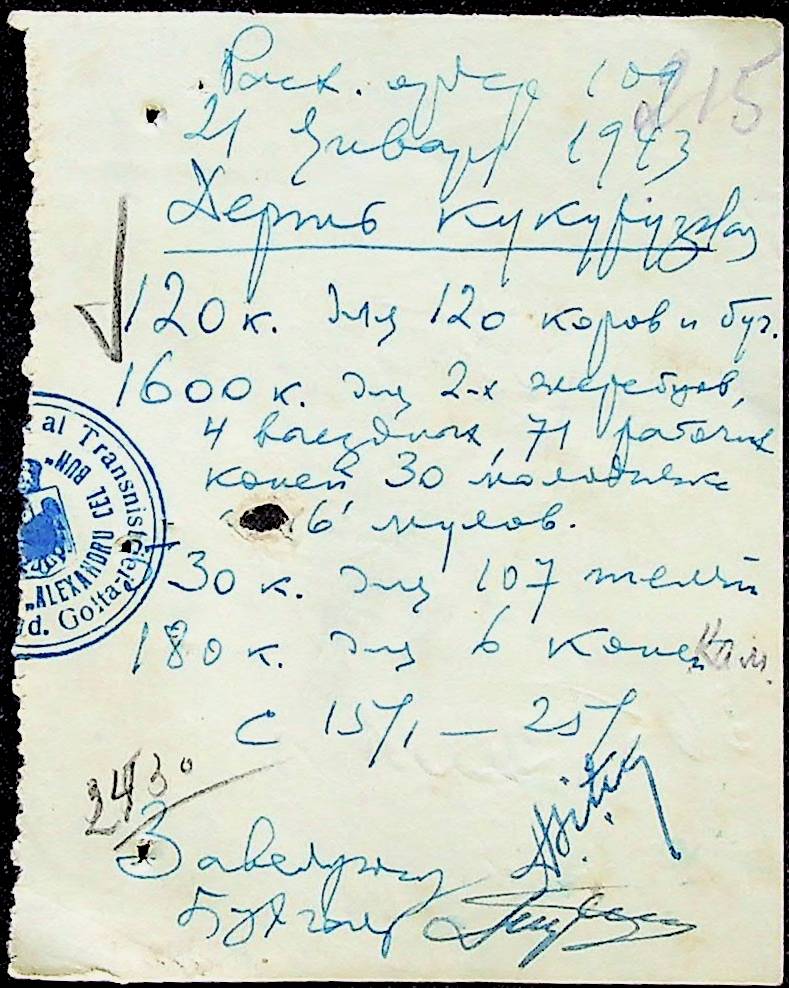 Расх. ордер 109
215
21 Января 1943
Дерть кукурузная
120 к. для 120 коров и буг.
1600 к. для 2-х жеребцов,
4 выездных, 71 рабочих
коней 30 молодняка
6 мулов.
530 к. для 107 телят
180 к. для 6 коней Кам.
С 15/1 — 25/
2430
Заведующ
Бухгалтер
al Transnistriei
"ALEXANDRU CEL BUN"
d. Golta